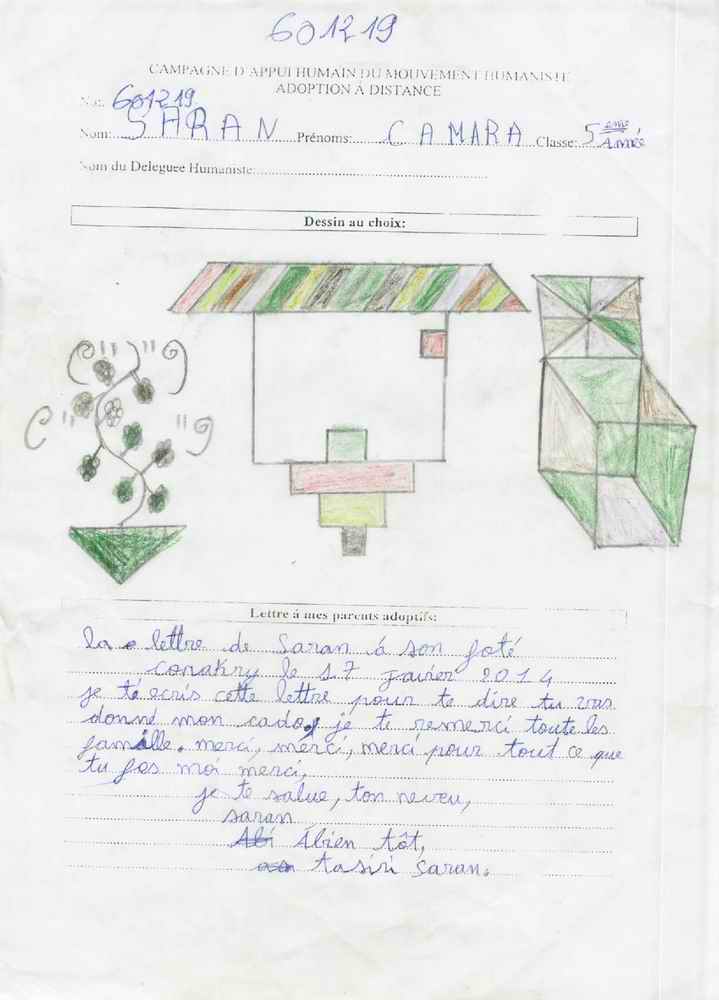 601219
CAMPAGNE D'APPUI HUMAIN DU MOUVEMENT HUMANISTE
ADOPTION À DISTANCE
No: 601219
Nom: SARAN Prénoms: CAMARA Classe: 5 eme Année
Nom du Deleguee Humaniste:
Dessin au choix:
Lettre á mes parents adoptifs:
la lettre de Saran á son foté
conakry le 17 javier 2014
je té ecris cette lettre pour te dire tu vas
donné mon cado, je te remerci toute les
famille. merci, merci, merci pour tout ce que
tu fes moi merci,
je te salue, ton neveu,
saran
Abi Abien tôt,
tasiri saran.